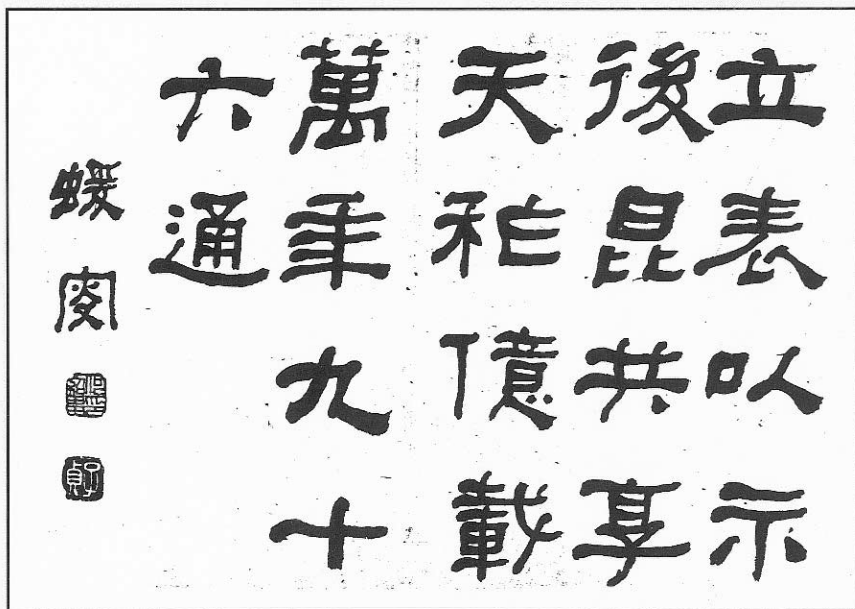 立表以示
後昆共享
天祚億載
萬年九十
六通
蝯叟
子貞